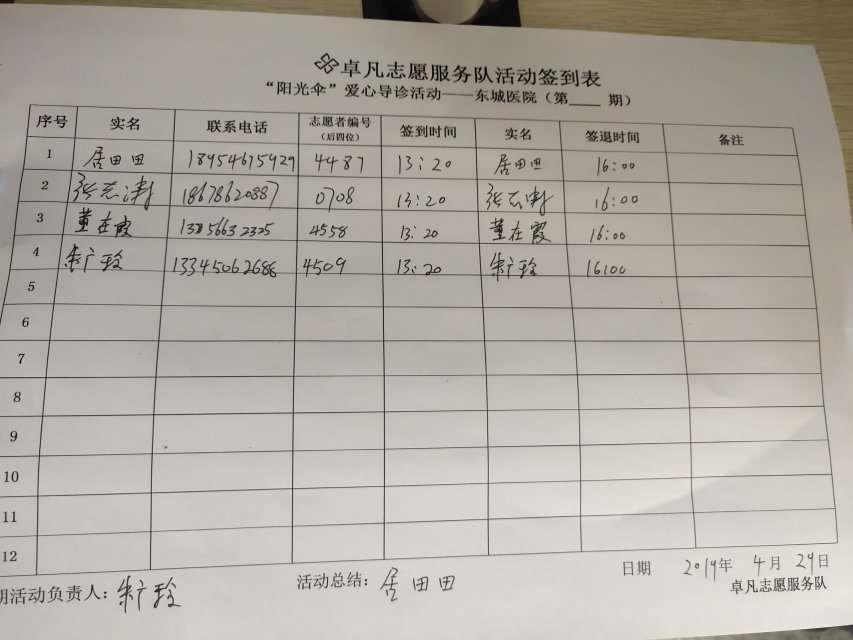 卓凡志愿服务队活动签到表
“阳光伞”爱心导诊活动——东城医院（第____期）
序号 实名 联系电话 志愿者编号（后四位） 签到时间 实名 签退时间 备注
1 居田田 18954675929 4487 13:20 居田田 16:00
2 18678620887 0708 13:20 16:00
3 董在霞 4558 13:20 董在霞 16:00
4 朱广玲 13345062686 4509 13:20 朱广玲 16:00
5
6
7
8
9
10
11
12
期活动负责人：朱广玲 活动总结：居田田 日期 2019年4月29日
卓凡志愿服务队